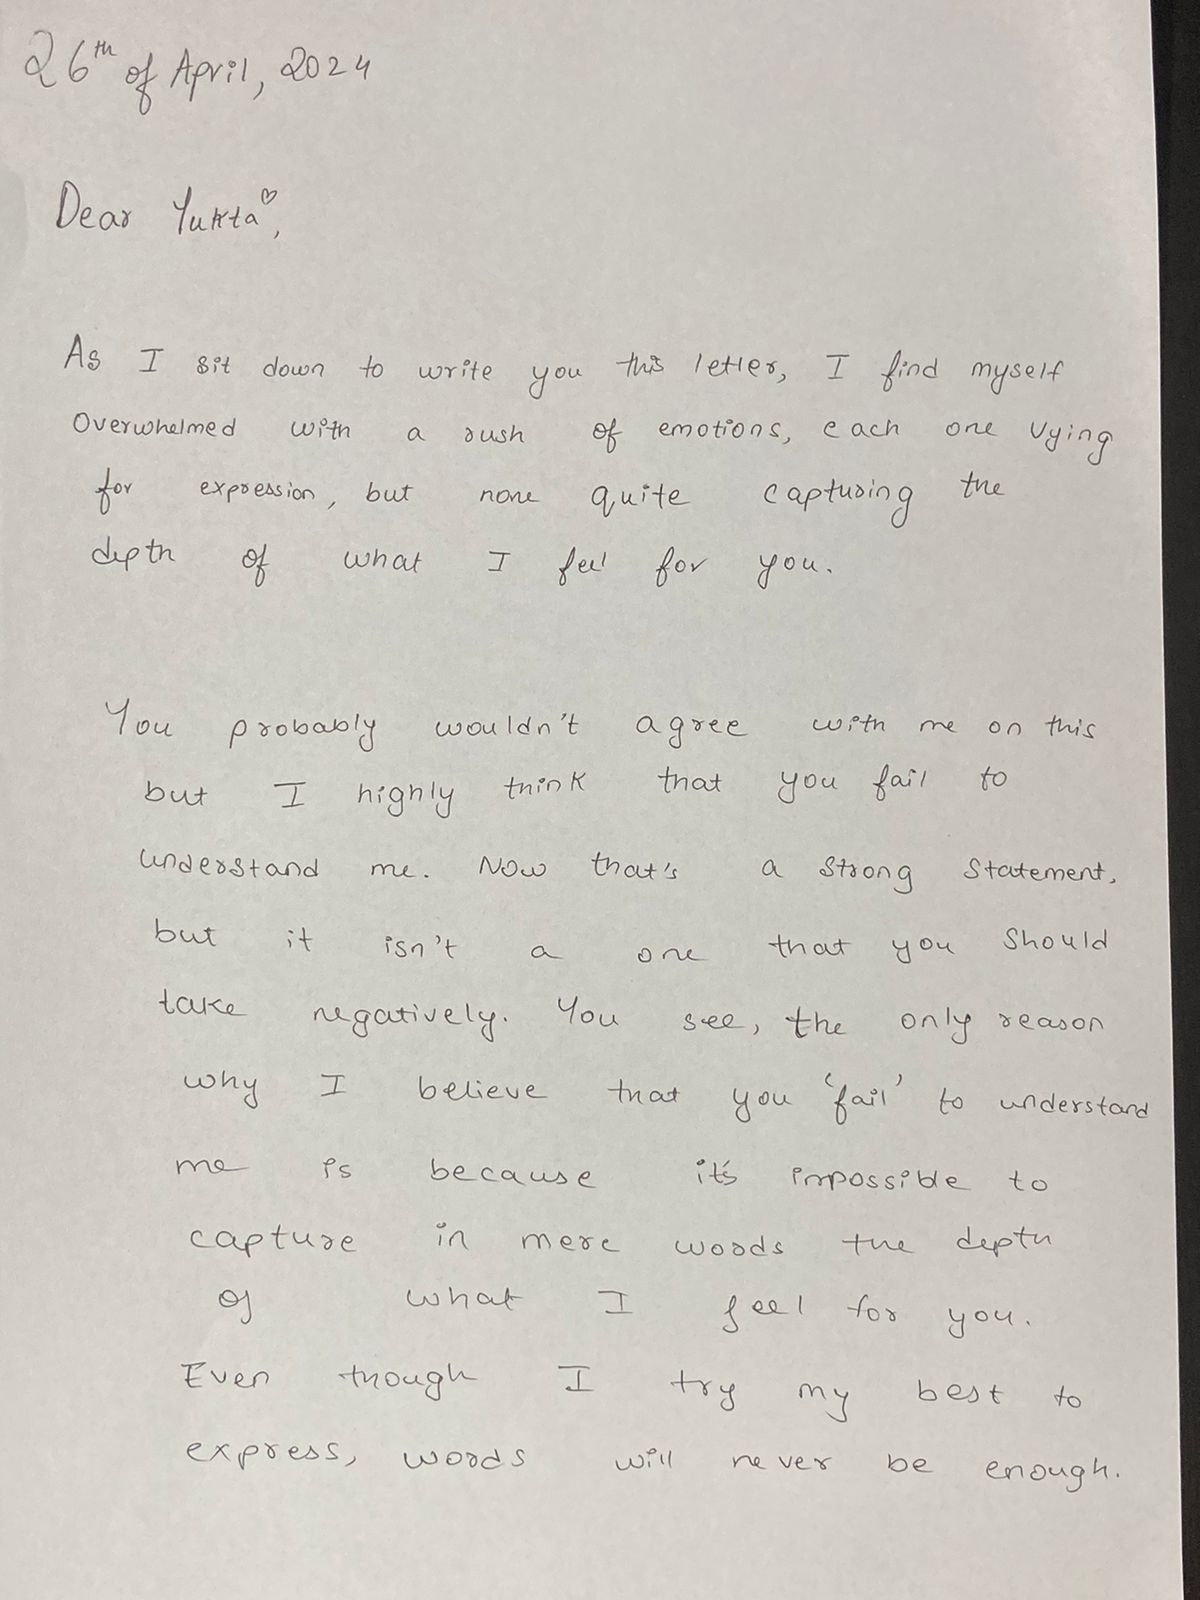 26th of April, 2024
Dear Yukta♡,
As I sit down to write you this letter, I find myself
Overwhelmed with a rush of emotions, each one vying
for expression, but none quite capturing the
depth of what I feel for you.
You probably wouldn't agree with me on this
but I highly think that you fail to
understand me. Now that's a strong statement,
but it isn't a one that you should
take negatively. You see, the only reason
why I believe that you 'fail' to understand
me is because it's impossible to
capture in mere words the depth
of what I feel for you.
Even though I try my best to
express, words will never be enough.